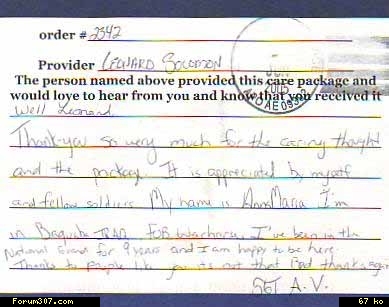 order # 2342
Provider LEONARD SOLOMON
The person named above provided this care package and
would love to hear from you and know that you received it
2005
APO AE 093
Well Leonard
Thank-you so very much for the caring thought
and the package. It is appreciated by myself
and fellow soldiers. My name is AnnMaria I'm
in Baquba IRAQ FOB Warhorse. I've been in the
National Guard for 9 years and I am happy to be here.
Thanks to people like you its not that bad thanks again
SGT A.V.
Forum307.com
67 ko